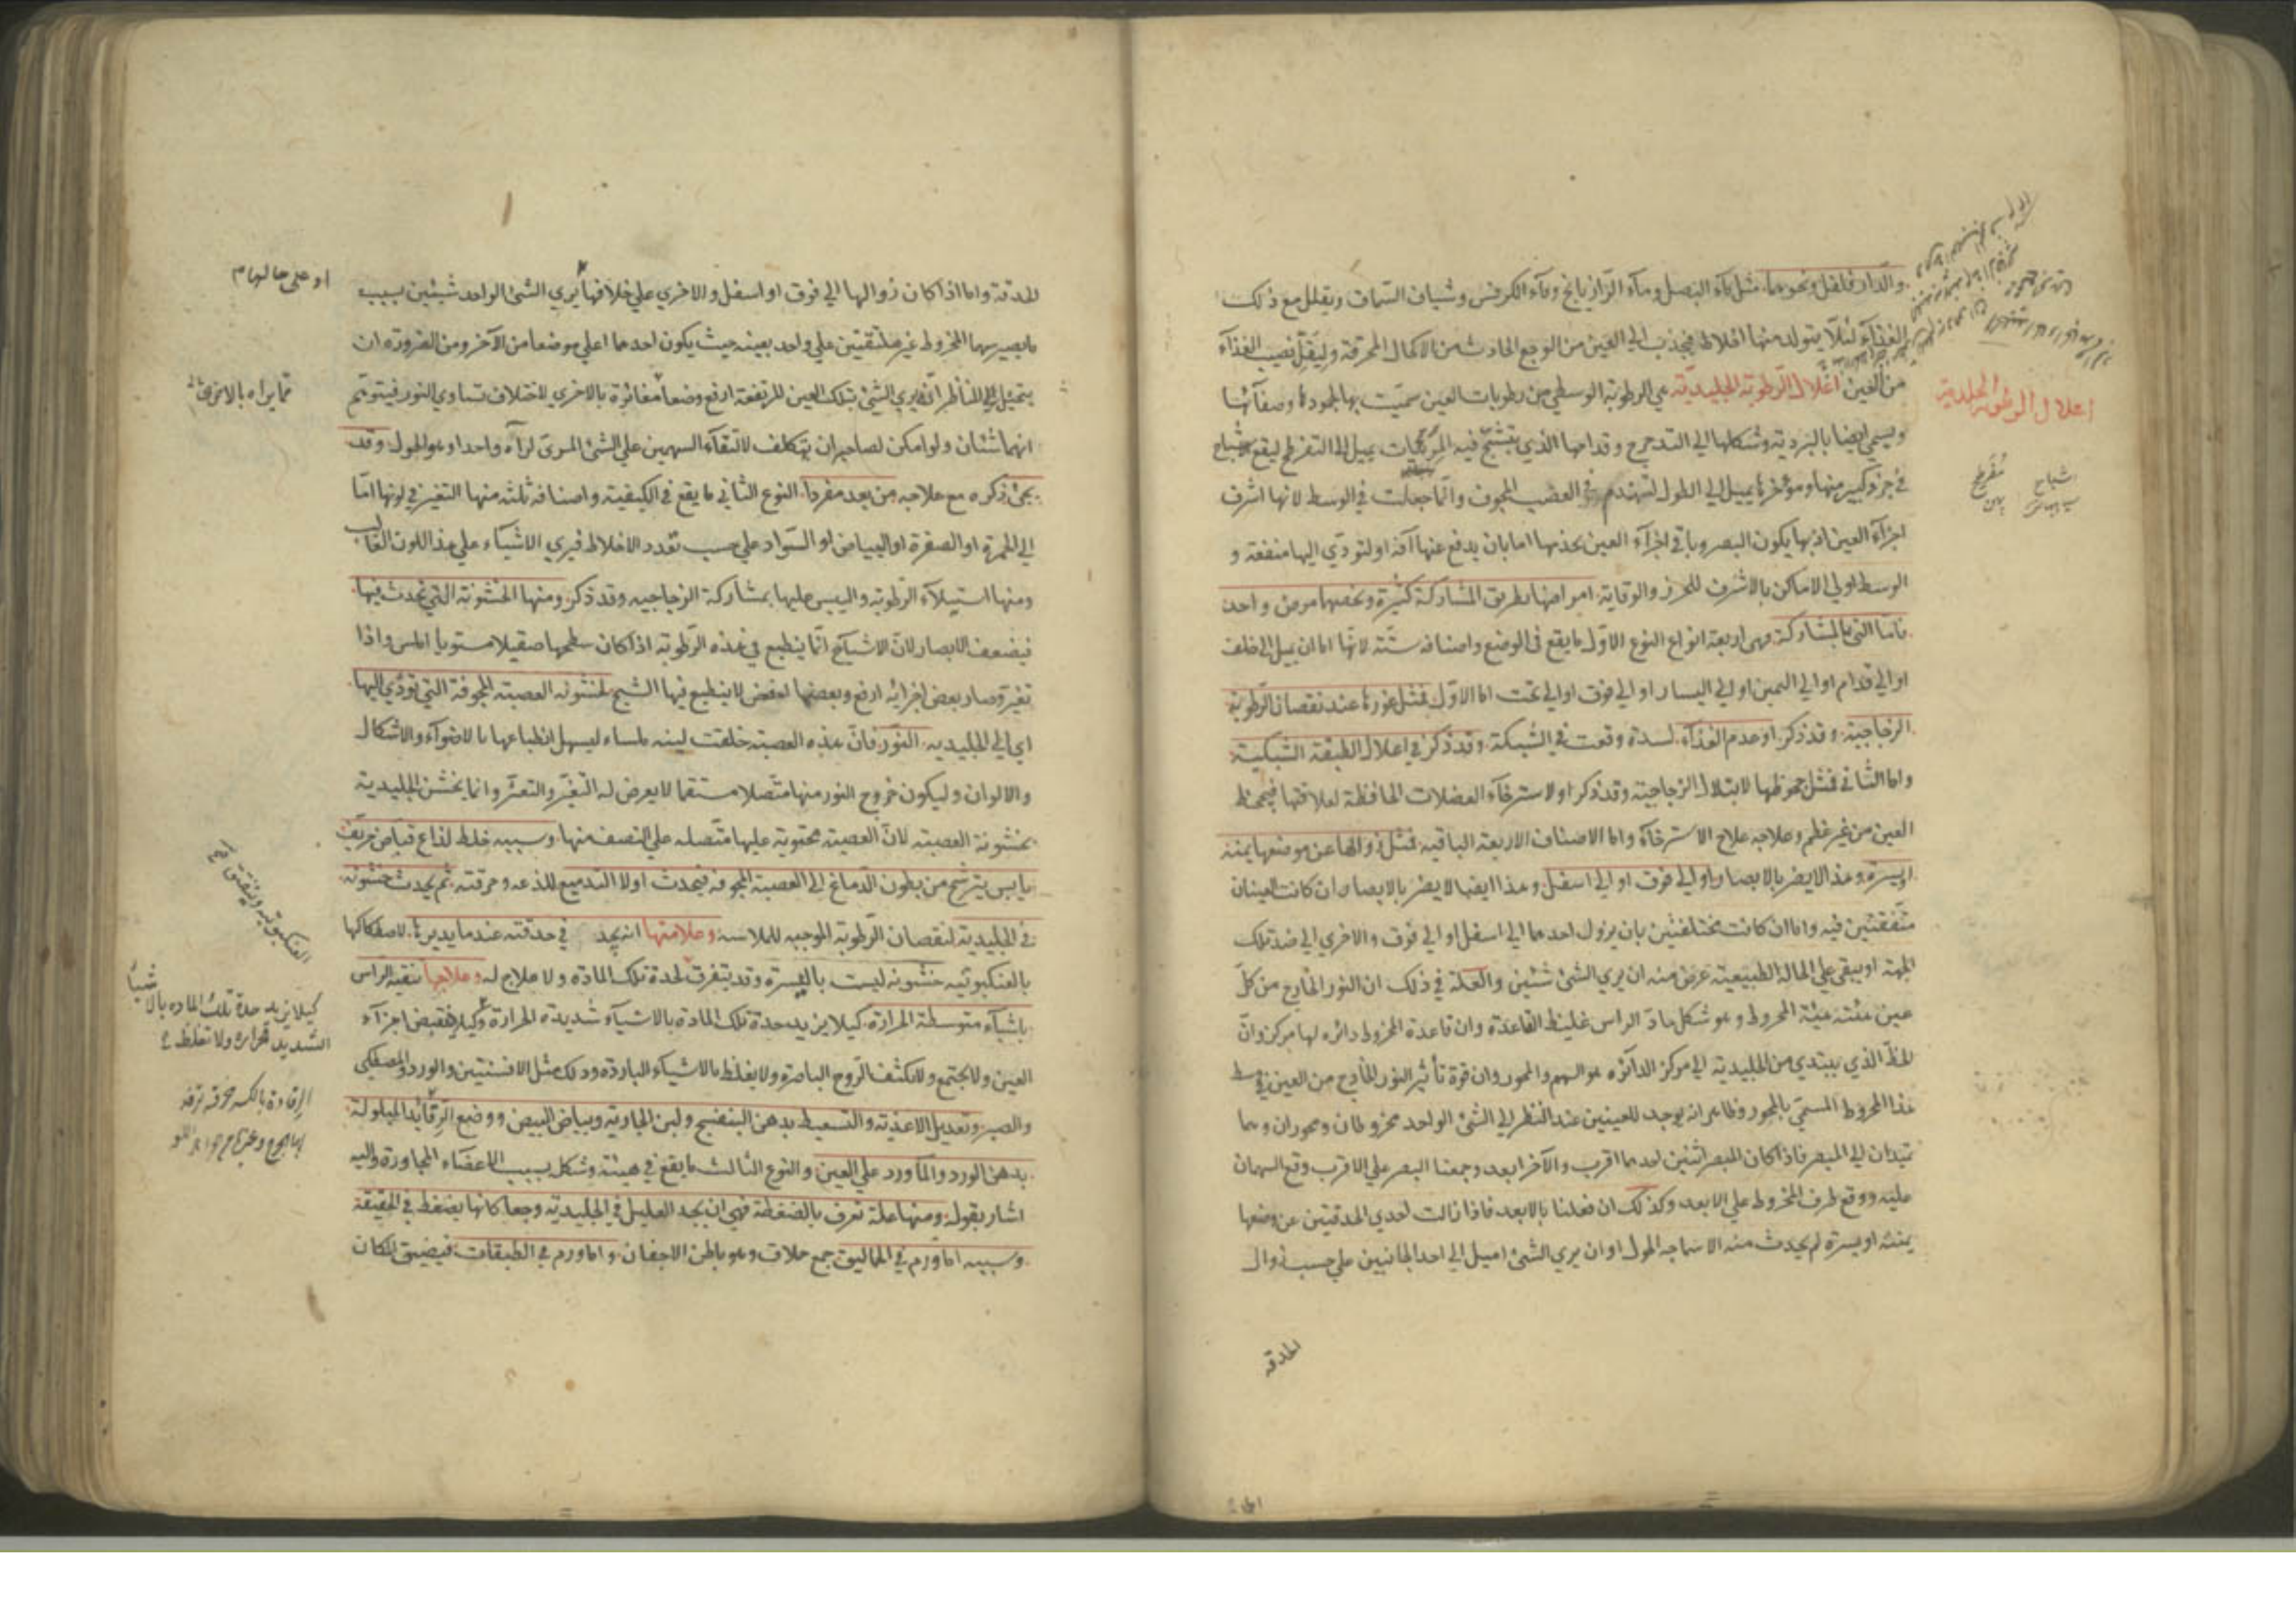 والدار فلفل ونحوهما مثل ماء البصل وماء الرازيانج وماء الكرفس وشياف السماق ويقلل مع ذلك
الغذاء لئلا يتولد منها اخلاط فيجذب الي العين من الوجع الحادث من الاكحال المحرقة وليقل نصيب الغذاء
من العين اعلال الرطوبة الجليدية هي الرطوبة الوسطي من رطوبات العين سميت بها لجمودها وصفائها
ويسمي ايضا بالبردية وشكلها الي التدحرج وقدامها الذي يتشبح فيه المرئيات يميل الي التفرطح ليقع الاشباح
في جزء كبير منها ومؤخرها يميل الي الطول لتهندم في العصب المجوف وانما جعلت في الوسط لانها اشرف
اجزاء العين اذ بها يكون البصر وباقي اجزاء العين يخدمها اما بان يدفع عنها آفة او لتودي اليها منفعة و
الوسط اولي الاماكن بالاشرف للحرز والوقاية امراضها بطريق المشاركة كثيرة ويخصها مرض واحد
فاما التي بالمشاركة فهي اربعة انواع النوع الاول ما يقع في الوضع واصنافه ستة لانها اما ان يميل الي خلف
او الي قدام او الي اليمين او الي اليسار او الي فوق او الي تحت اما الاول فمثل غورها عند نقصان الرطوبة
الزجاجية وقد ذكر او عدم الغذاء لسدة وقعت في الشبكة وقد ذكر في اعلال الطبقة الشبكية
واما الثاني فمثل جحوظها لابتلال الزجاجية وقد ذكر او لاسترخاء العضلات الحافظة لعلاقتها فيجحظ
العين من غير عظم وعلاجه علاج الاسترخاء واما الاصناف الاربعة الباقية فمثل زوالها عن موضعها يمنة
او يسرة وهذا لا يضر بالابصار او الي فوق او الي اسفل وهذا ايضا لا يضر بالابصار ان كانت العينان
متفقتين فيه واما ان كانت مختلفتين بان يزول احدهما الي اسفل او الي فوق والاخري الي ضد تلك
الجهة او يبقي علي الحالة الطبيعية عرض منه ان يري الشئ شئين والعلة في ذلك ان النور الخارج من كل
عين هيئته هيئة المخروط وهو شكل حاد الراس غليظ القاعدة وان قاعدة المخروط دائرة لها مركز وان
الخط الذي يبتدي من الجليدية الي مركز الدائره هو السهم والمحور وان قوة تأثير النور الخارج من العين في وسط
هذا المخروط المسمي بالمحور وظاهر انه يوجد للعينين عند النظر الي الشئ الواحد مخروطان ومحوران وهما
يمتدان الي المبصر فاذا كان المبصر اثنين احدهما اقرب والآخر ابعد وجمعنا البصر علي الاقرب وقع السهمان
عليه ووقع طرف المخروط علي الابعد وكذلك ان فعلنا بالابعد فاذا زالت احدي الحدقتين عن وضعها
يمنة او يسرة لم يحدث منه الا سماجه الحول او ان يري الشئ اميل الي احد الجانبين علي حسب زوال
الحدقه
اعلال الرطوبة الجليدية
اشباح
الحدقة واما اذا كان زوالها الي فوق او اسفل والاخري علي خلافها يري الشئ الواحد شيئين بسبب
ما يصير سهما المخروط غير ملتقيتين علي واحد بعينه حيث يكون احدهما اعلي موضعا من الآخر ومن الضرورة ان
يتخيل الي الناظر انه يري الشئ بتلك العين المرتفعة ارفع وضعا مغائرة بالاخري لاختلاف تساوي النور فيتوهم
انهما شئان ولو امكن لصاحبه ان يتكلف لالتقاء السهمين علي الشئ المرئ لرآه واحدا وهو الحول وقد
يجئ ذكره مع علاجه من بعد مفردا النوع الثاني ما يقع في الكيفية واصنافه ثلثه منها التغير في لونها اما
الي الحمرة او الصفرة او البياض او السواد علي حسب تعدد الاخلاط فيري الاشياء علي هذا اللون الغالب
ومنها استيلاء الرطوبة واليبس عليها بمشاركة الزجاجيه وقد ذكر ومنها الخشونة التي تحدث فيها
فيضعف الابصار لان الاشباح انما ينطبع في هذه الرطوبة اذا كان سطحها صقيلا مستويا املس واذا
تغير وصار بعض اجزائه ارفع وبعضها اخفض لا ينطبع فيها الشبح لخشونه العصبة المجوفة التي تودي اليها
اي الي الجليديه النور فان هذه العصبة خلقت لينه ملساء ليسهل انطباعها بالاضواء والاشكال
والالوان وليكون خروج النور منها متصلا مستقيما لا يعرض له التغير والتعثر وانما يخشن الجليدية
بخشونة العصبة لان العصبة محتوية عليها متصله علي النصف منها وسببه خلط لذاع قباض حريف
يابس يترشح من بطون الدماغ الي العصبة المجوفة فيحدث اولا التدميع للذعه وحرقته ثم يحدث خشونه
في الجليدية لنقصان الرطوبة الموجبه للملاسة وعلامتها انه يجد في حدقته عند ما يديرها لاصطكاكها
بالعنكبوتيه خشونه ليست باليسيرة وقد يتفرق لحدة تلك المادة ولا علاج له وعلاجها تنقية الراس
باشياء متوسطة الحرارة كيلا يزيد حدة تلك المادة بالاشياء شديدة الحرارة وكيلا يقبض اجزاء
العين ولا يجتمع ولا يتكثف الروح الباصرة ولا يغلظ بالاشياء الباردة وذلك مثل الافسنتين والورد والمصطكي
والصبر وتعديل الاغذية والتسعيط بدهن البنفسج ولبن الجارية وبياض البيض ووضع الرفائد المبلولة
بدهن الورد والماورد علي العين والنوع الثالث ما يقع في هيئة وشكل بسبب الاعضاء المجاورة واليه
اشار بقوله ومنها علة تعرف بالضغطة فهي ان يجد العليل في الجليدية وجعا كانها يضغط في الحقيقة
وسببه اما ورم في الحماليق جمع حملاق وهو باطن الاجفان واما ورم في الطبقات فيضيق المكان
او علي حالهام
كيلا يزيد حدة تلك الماده بالاشيا
الشديد الحرارة ولا تغلظ
الرفادة بالكسر خرقه